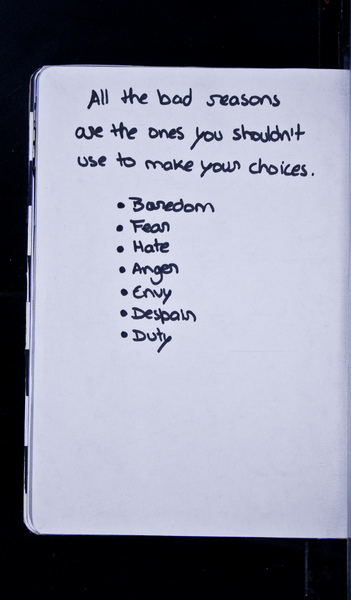 All the bad reasons
are the ones you shouldn't
use to make your choices.
• Boredom
• Fear
• Hate
• Anger
• Envy
• Despair
• Duty